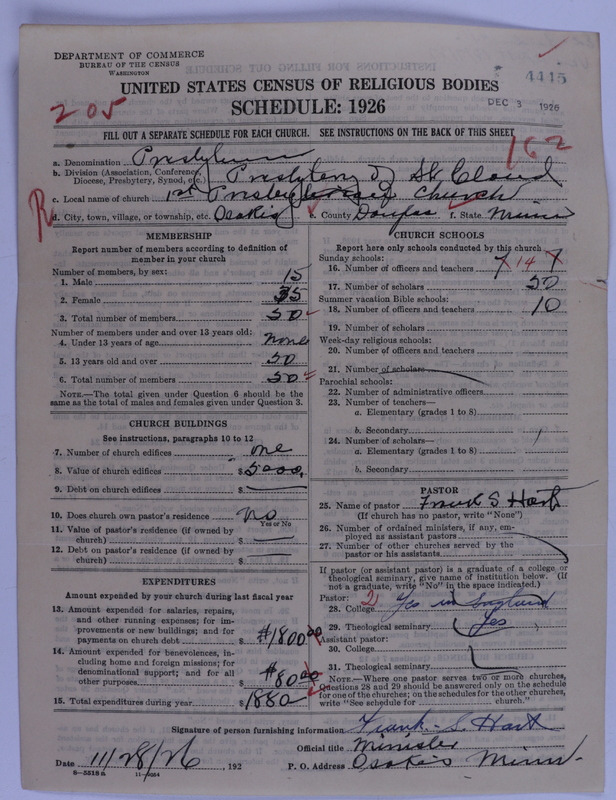 DEPARTMENT OF COMMERCE
BUREAU OF THE CENSUS
WASHINGTON
4415
UNITED STATES CENSUS OF RELIGIOUS BODIES
SCHEDULE: 1926
DEC 3 1926
205
FILL OUT A SEPARATE SCHEDULE FOR EACH CHURCH. SEE INSTRUCTIONS ON THE BACK OF THIS SHEET
162
a. Denomination Presbyterian
b. Division (Association, Conference, Diocese, Presbytery, Synod, etc.) Presbytery of St Cloud
c. Local name of church 1st Presbyterian Church
R
d. City, town, village, or township, etc. Osakis e. County Douglas f. State Minn
MEMBERSHIP
Report number of members according to definition of
member in your church
Number of members, by sex:
1. Male 15
2. Female 35
3. Total number of members 50
Number of members under and over 13 years old:
4. Under 13 years of age None
5. 13 years old and over 50
6. Total number of members 50
NOTE.—The total given under Question 6 should be
the same as the total of males and females given under Question 3.
CHURCH BUILDINGS
See instructions, paragraphs 10 to 12
7. Number of church edifices one
8. Value of church edifices $5000.
9. Debt on church edifices $
10. Does church own pastor's residence No
Yes or No
11. Value of pastor's residence (if owned by
church) $
12. Debt on pastor's residence (if owned by
church) $
EXPENDITURES
Amount expended by your church during last fiscal year
13. Amount expended for salaries, repairs,
and other running expenses; for im-
provements or new buildings; and for
payments on church debt $1800 00
14. Amount expended for benevolences, in-
cluding home and foreign missions; for
denominational support; and for all
other purposes $80 00
15. Total expenditures during year $1880
CHURCH SCHOOLS
Report here only schools conducted by this church
Sunday schools:
16. Number of officers and teachers 7 14 7
17. Number of scholars 50
Summer vacation Bible schools:
18. Number of officers and teachers 10
19. Number of scholars
Week-day religious schools:
20. Number of officers and teachers
21. Number of scholars
Parochial schools:
22. Number of administrative officers
23. Number of teachers—
a. Elementary (grades 1 to 8)
b. Secondary
24. Number of scholars—
a. Elementary (grades 1 to 8)
b. Secondary
PASTOR
25. Name of pastor Frank S Hart
(If church has no pastor, write "None")
26. Number of ordained ministers, if any, em-
ployed as assistant pastors
27. Number of other churches served by the
pastor or his assistants
If pastor (or assistant pastor) is a graduate of a college or
theological seminary, give name of institution below. (If
not a graduate, write "No" in the space indicated.)
Pastor: 2
28. College Yes in England
29. Theological seminary Yes
Assistant pastor:
30. College
31. Theological seminary
NOTE.—Where one pastor serves two or more churches,
Questions 28 and 29 should be answered only on the schedule
for one of the churches; on the schedules for the other churches,
write "See schedule for church."
Signature of person furnishing information Frank S. Hart
Official title Minister
Date 11/28/26, 192
P. O. Address Osakis Minn.
8—5518 a